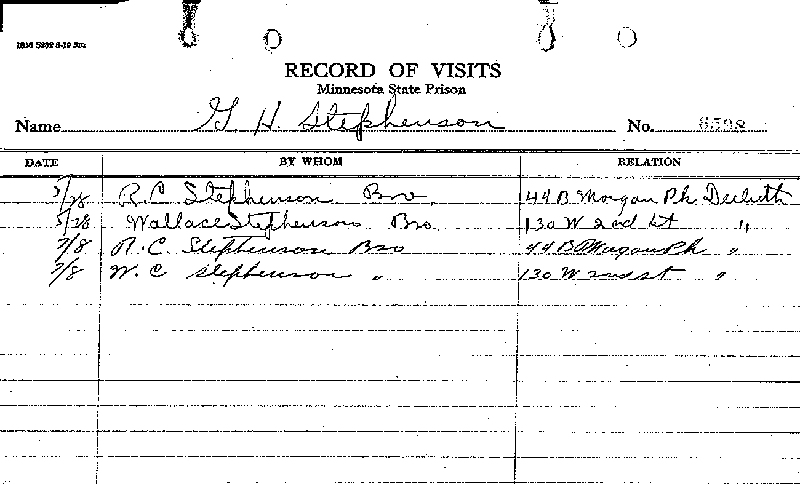 RECORD OF VISITS
Minnesota State Prison
Name G. H. Stephenson No. 6598
DATE BY WHOM RELATION
5/28 R.C. Stephenson Bro. 44 B Morgan Pk. Duluth
5/28 Wallace Stephenson Bro 130 W 2nd St "
7/8 R.C. Stephenson Bro 44 B Morgan Pk "
7/8 W.C. Stephenson " 130 W 2nd st "